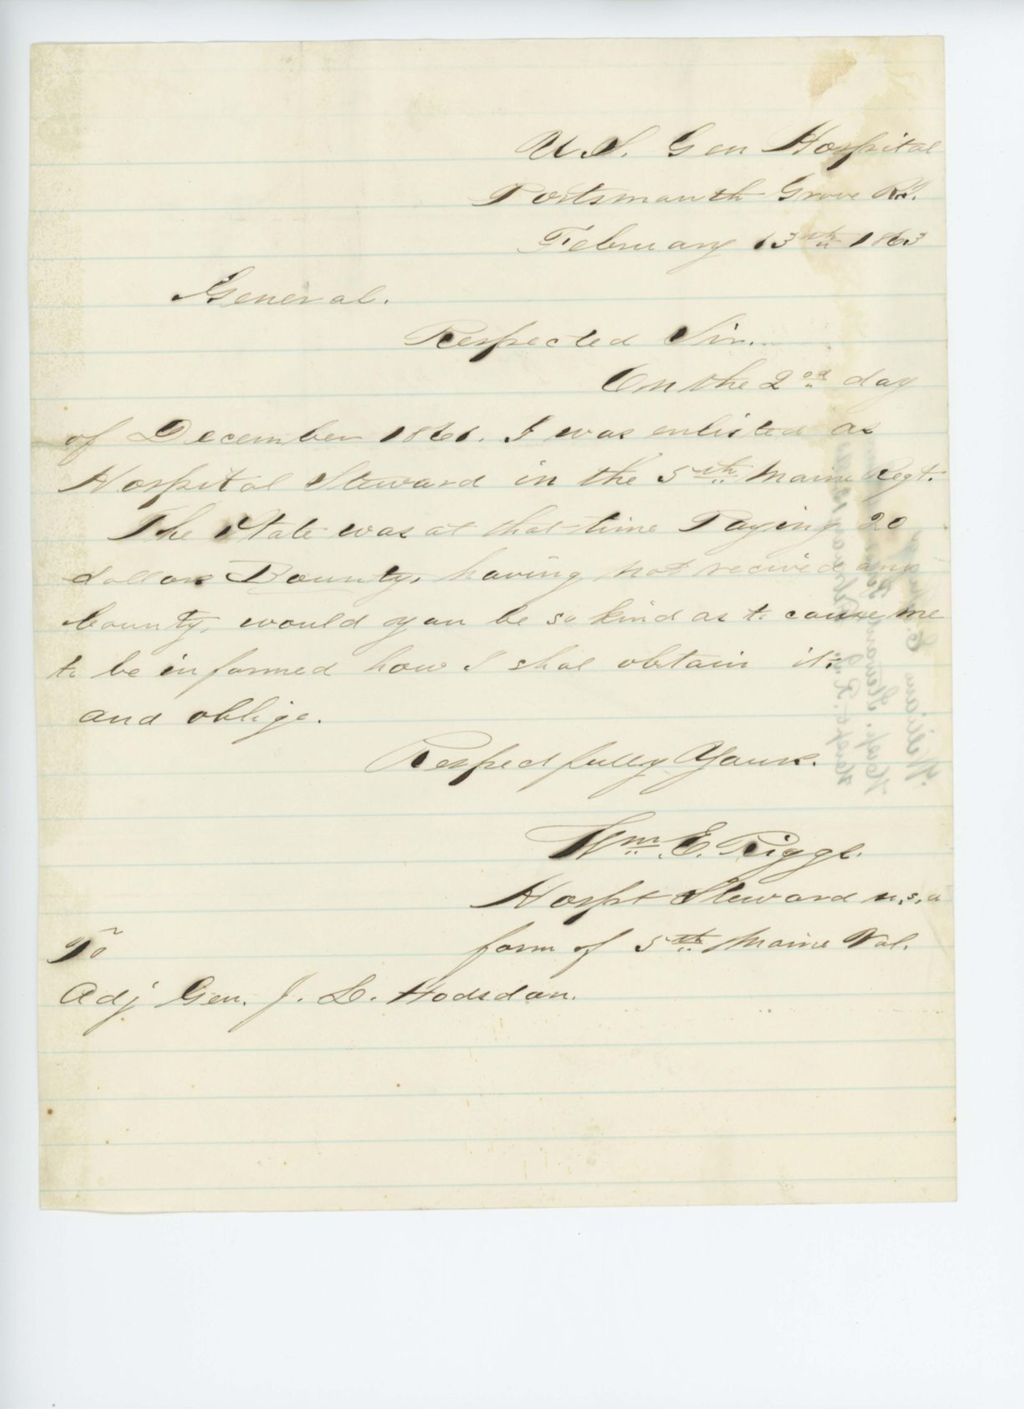 U.S. Gen Hospital
Portsmouth Grove R.I.
February 13th 1863
General.
Respected Sir.
On the 2nd day
of December 1861. I was enlisted as
Hospital Steward in the 5th Maine Regt.
The State was at that time Paying 20
dollars Bounty, having not recived any
bounty, would you be so kind as to cause me
to be informed how I shal obtain it.
and oblige.
Respectfully Yours.
Wm. E. Riggs.
Hospt Steward u.s.a
form of 5th Maine Vol.
To
Adj Gen. J. L. Hodsdon.